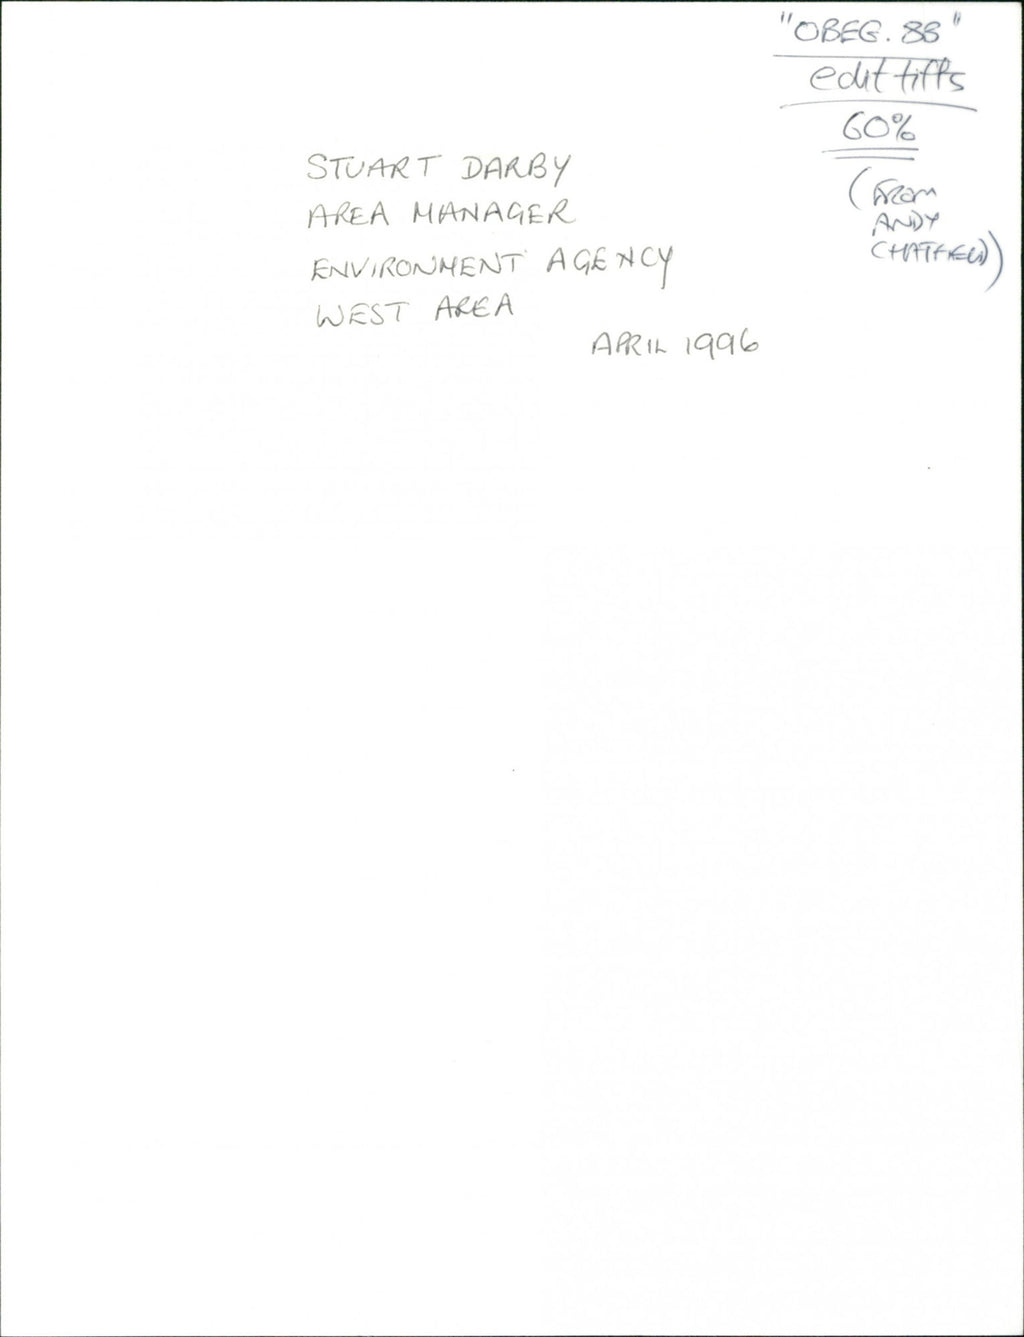 "OBEG. 88"
edit tiffs
60%
(From
ANDY
CHATFIELD)
STUART DARBY
AREA MANAGER
ENVIRONMENT AGENCY
WEST AREA
APRIL 1996